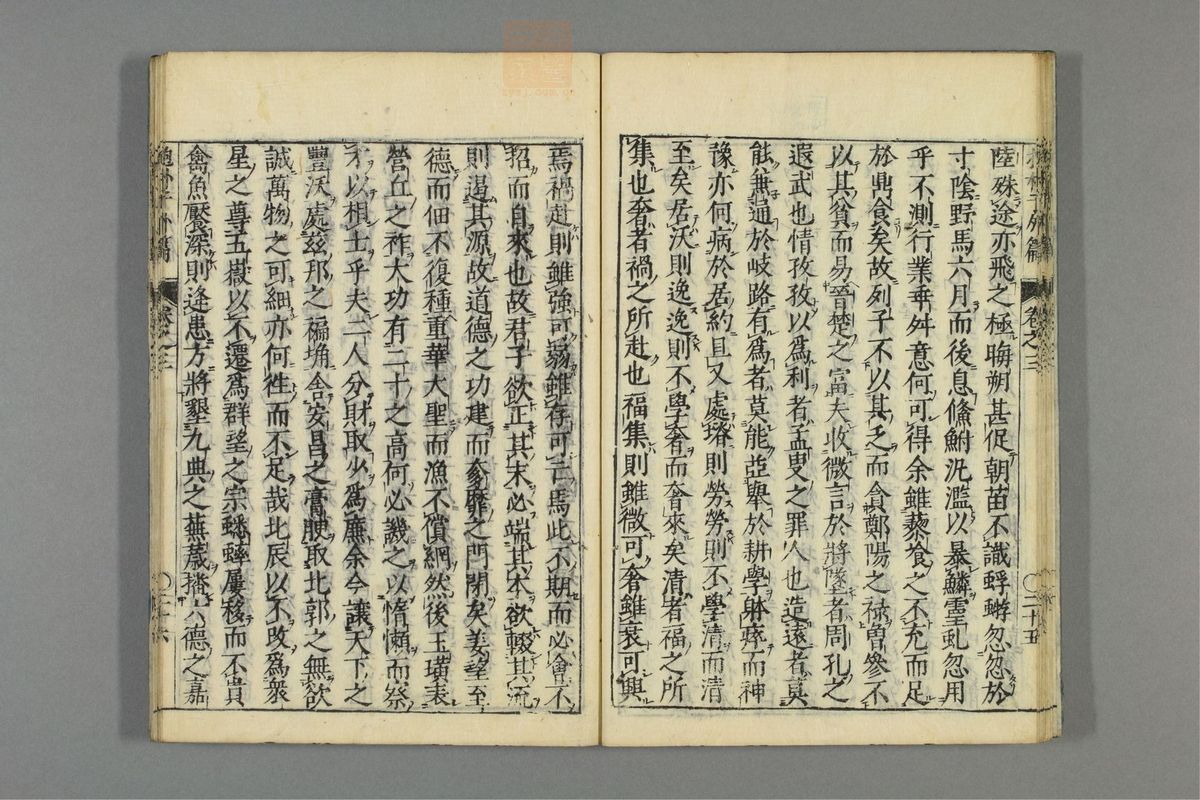 陸殊途亦飛之極晦朔甚促朝苗不識蜉蝣忽忽於
寸陰野馬六月而後息儵鮒汎濫以暴鱗靈虬忽用
乎不測行業乖舛意何可得余雖藜飡之不充而足
於鼎食矣故列子不以其乏而貪鄭陽之祿曾參不
以其貧而易晉楚之富夫收微言於將墜者周孔之
遐武也情孜孜以為利者孟叟之罪人也造遠者莫
能無過於岐路有為者莫能亞舉於耕學躰瘁而神
豫亦何病於居約且又處瘠則勞勞則不學清而清
至矣居沃則逸逸則不學奢而奢來矣清者福之所
集也奢者禍之所赴也福集則雖微可奢雖衰可興
焉禍赴則雖強可弱雖存可亡焉此不期而必會不
招而自來也故君子欲正其末必端其本欲輟其流
則遏其源故道德之功建而豸靡之門閉矣姜望至
德而佃不復種重華大聖而漁不償網然後玉璜表
營丘之祚大功有二十之高何必譏之以惰懶而察
才以相士乎夫二人分財取少為廉余今讓天下之
豐沃處茲邦之褊埆舍安昌之膏腴取北郭之無欲
誠萬物之可細亦何往而不足哉北辰以不改為衆
星之尊五嶽以不遷為群望之宗蟋蟀屢移而不貴
禽魚厭深則逢患方將墾九典之蕪薉播六德之嘉
卷之三
二十五
抱朴子外篇
卷之三
二十六